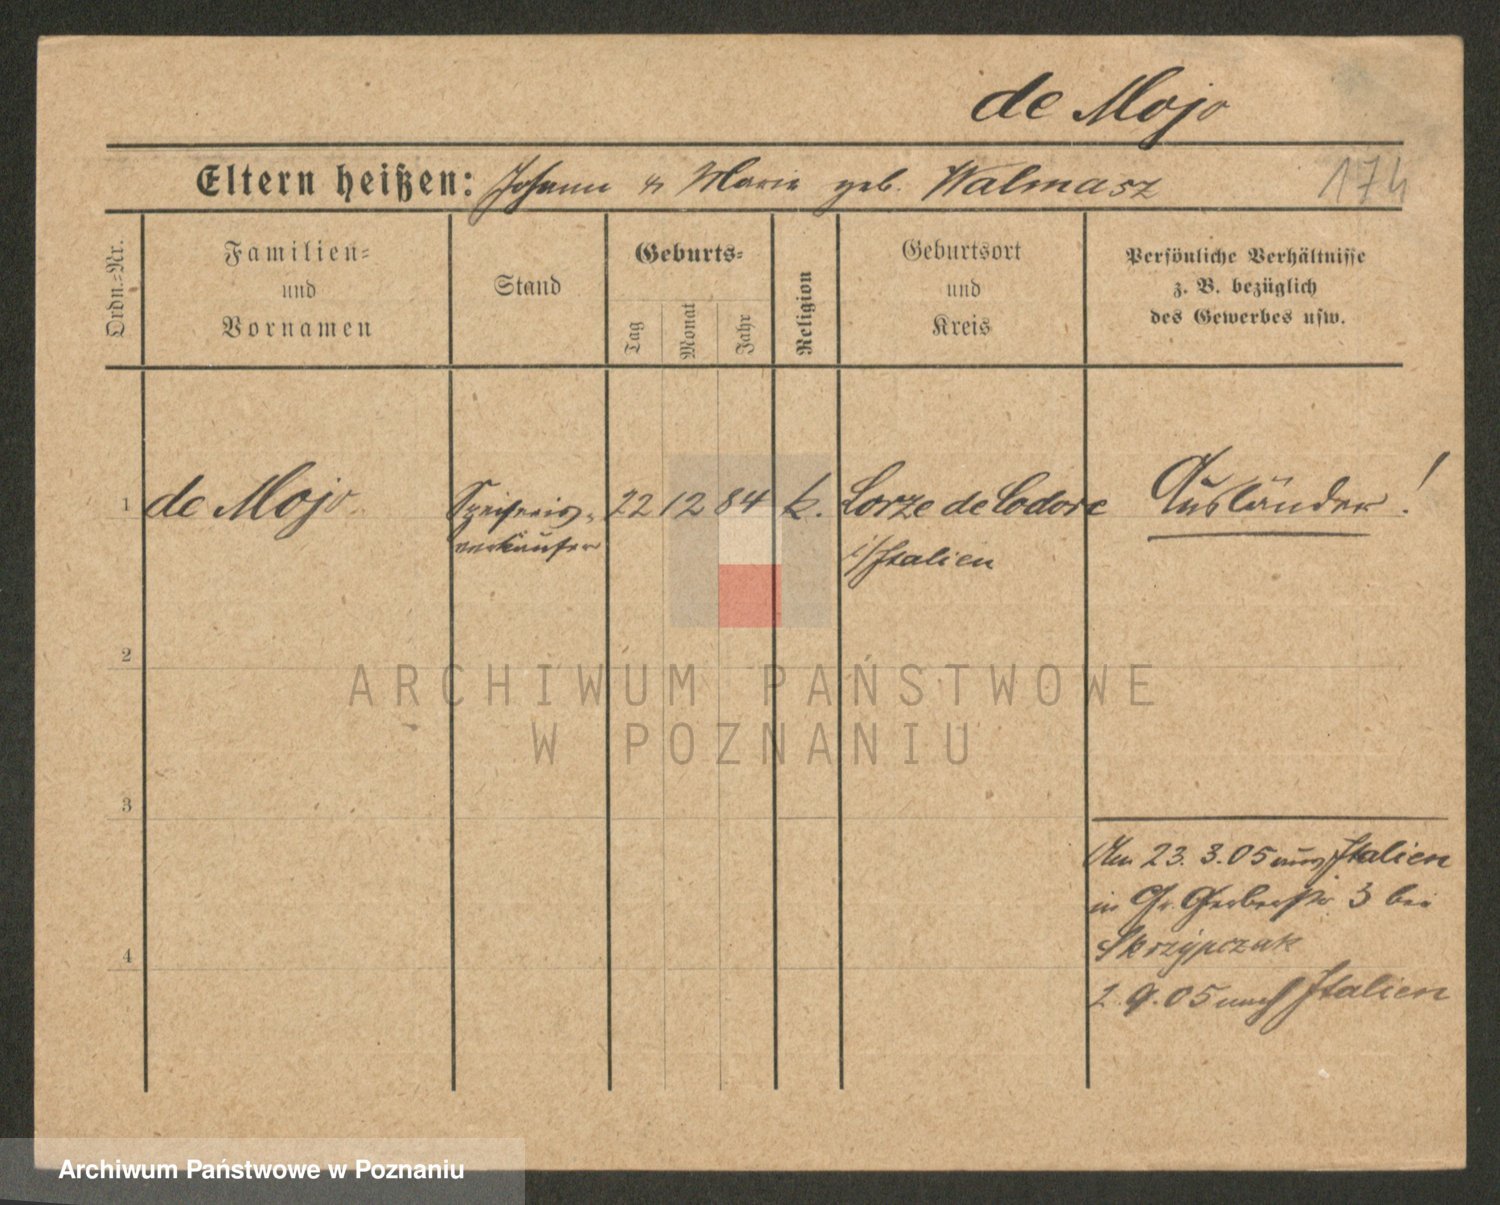 de Mojo
Eltern heißen: Johann u Marie geb. Walmasz
174
Ordn.-Nr.
Familien-
und
Vornamen
Stand
Geburts-
Tag
Monat
Jahr
Religion
Geburtsort
und
Kreis
Persönliche Verhältnisse
z. B. bezüglich
des Gewerbes usw.
1 de Mojo Speiseeis- 22 12 84 k. Lorze de Codore Ausländer!
verkäufer i/Italien
2
ARCHIWUM PAŃSTWOWE
W POZNANIU
3
Am 23. 3. 05 aus Italien
in Gr. Gerberstr 3 bei
4 Skrzypczak
2. 9. 05 nach Italien
Archiwum Państwowe w Poznaniu